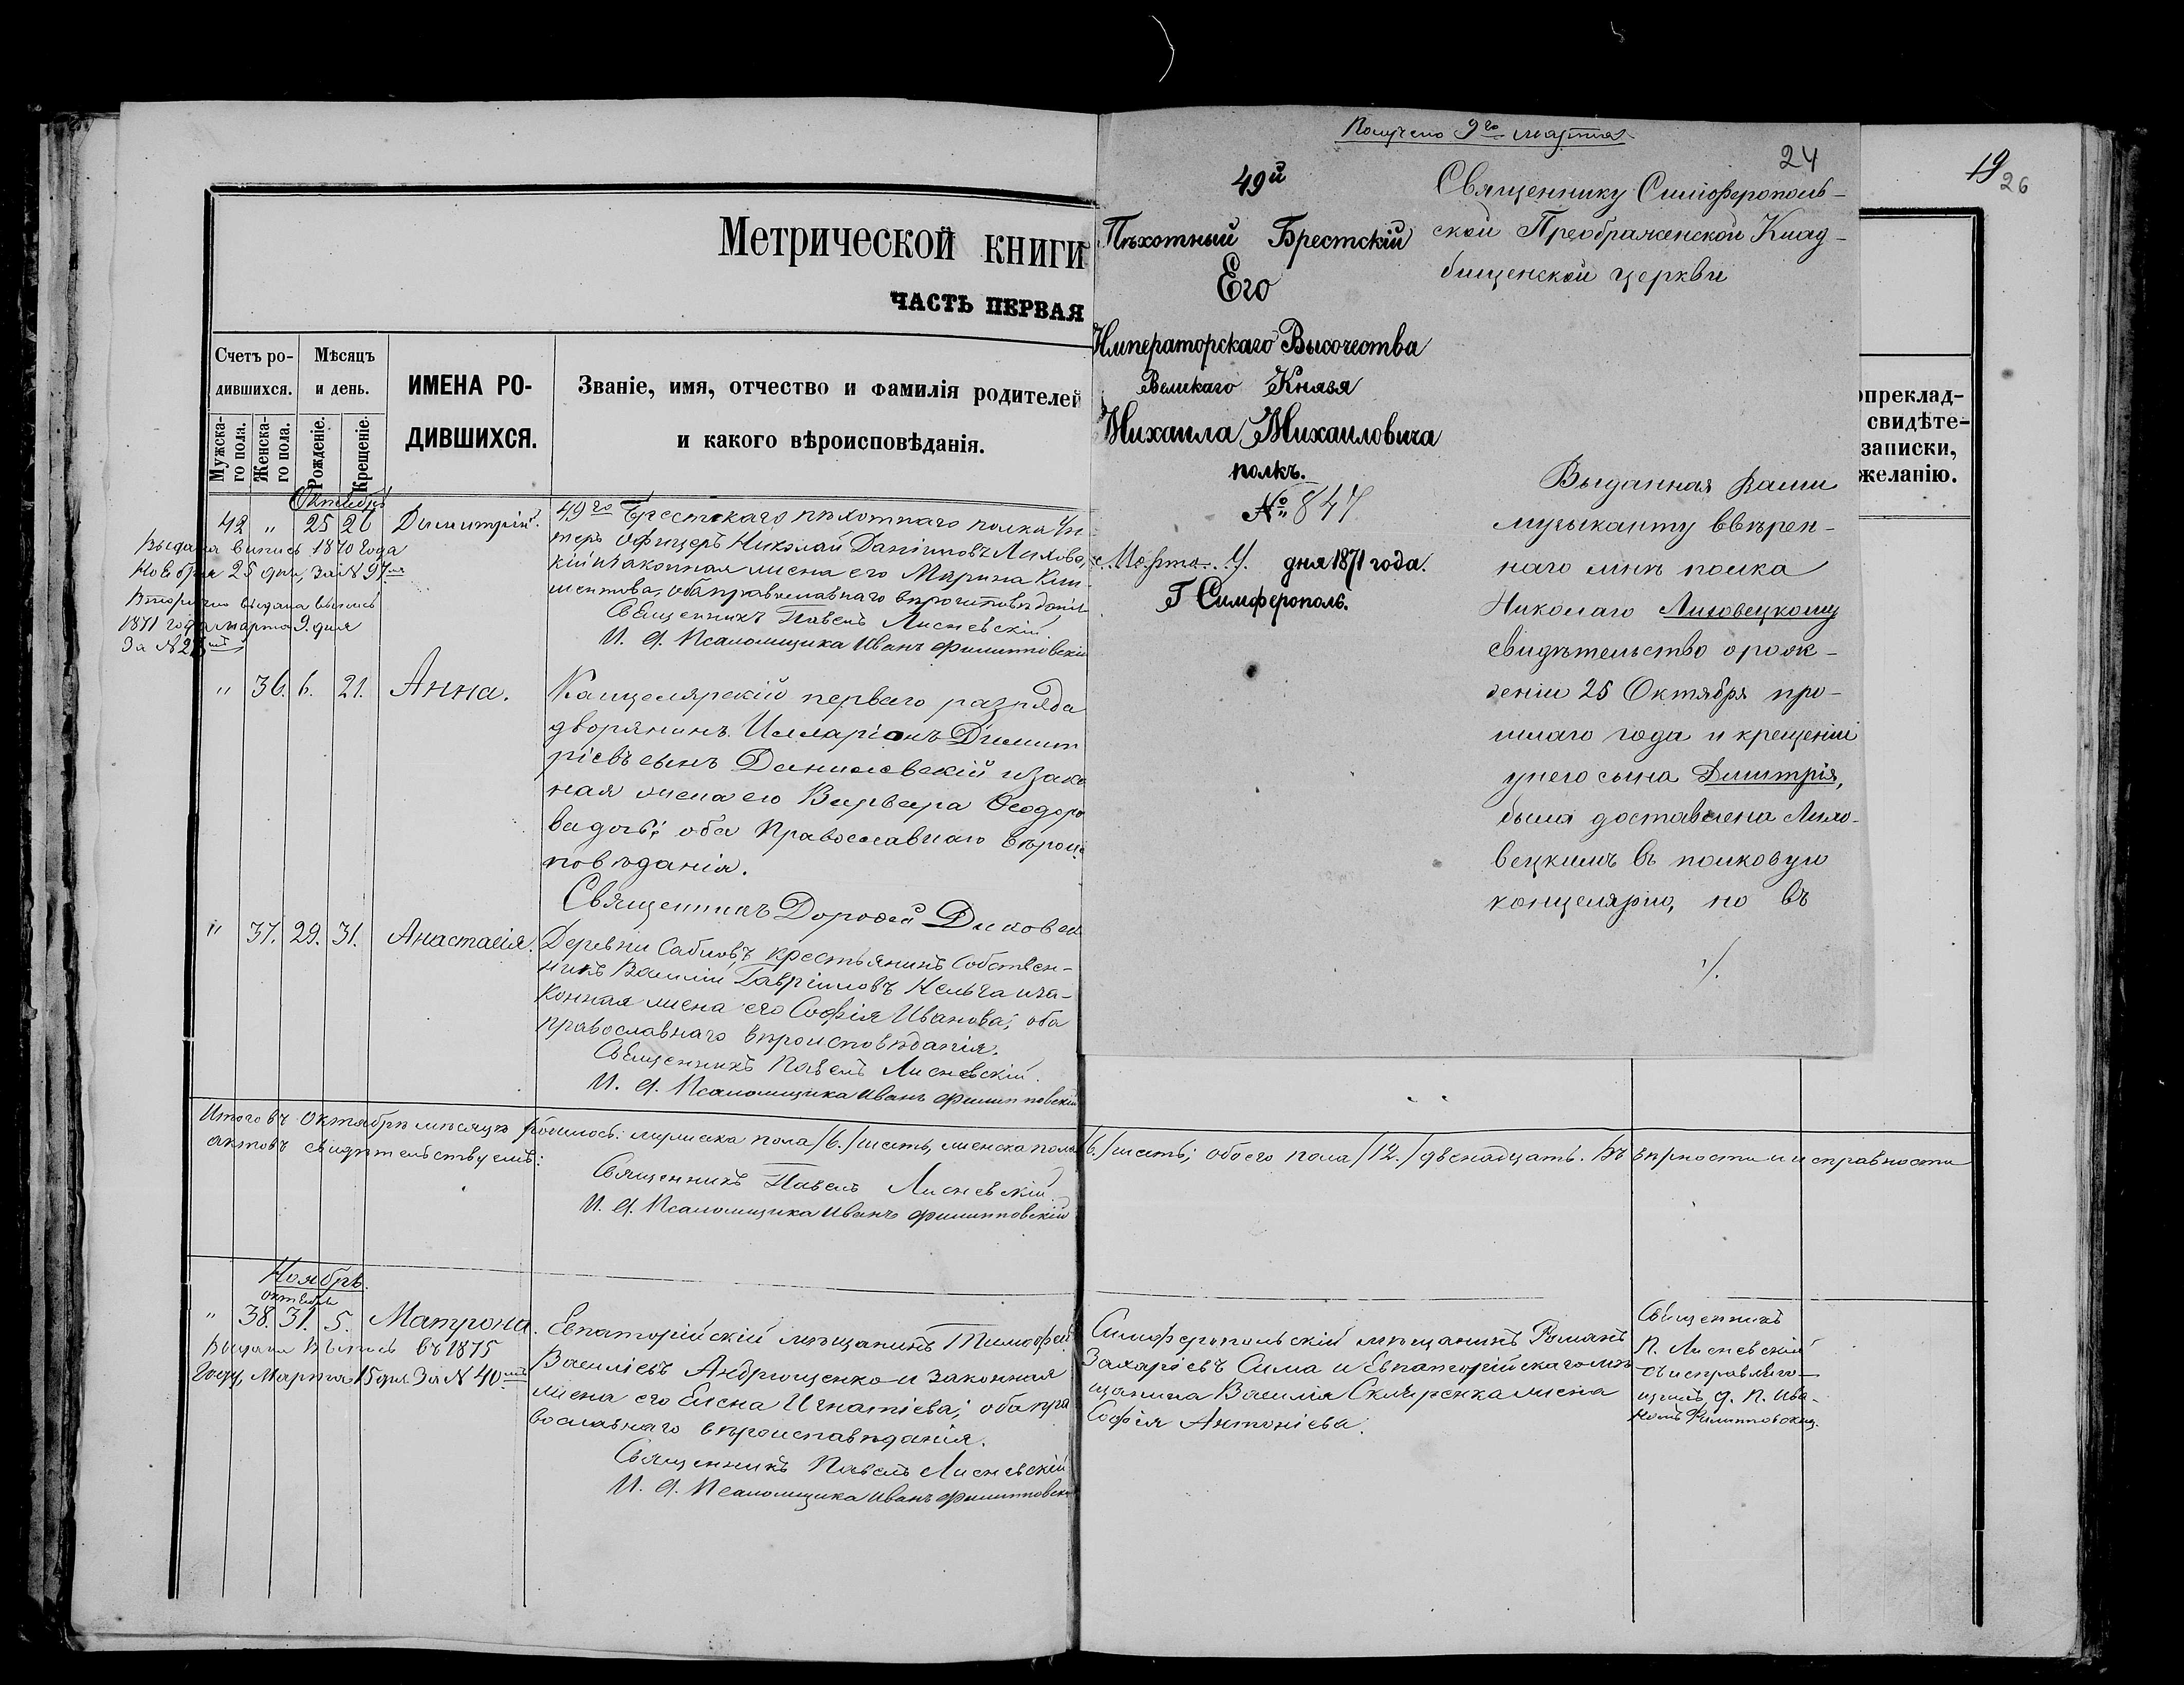 Метрической книги
ЧАСТЬ ПЕРВАЯ
Счетъ ро-
дившихся.
Мужска-
го пола.
Женска-
го пола.
Мѣсяцъ
и день.
Рожденіе.
Крещеніе.
ИМЕНА РО-
ДИВШИХСЯ.
Званіе, имя, отчество и фамилія родителей
и какого вѣроисповѣданія.
Октябрь
42 " 25 26 Димитрій.
Выдана выпись 1870 года
Ноября 25 дня, за № 97
Вторично выдана выпись
1871 года марта 9. дня
За №
49го Брестскаго пѣхотнаго полка Ун
теръ офицеръ Николай Даніиловъ Лихове
кій и законная жена его Марина Кли
ментова, оба православнаго вѣроисповѣданія
Священникъ Павелъ Лисневскій.
И. д. Псаломщика Иванъ Филипповскій
" 36. 6. 21. Анна.
Канцелярскій перваго разряда
дворянинъ Илларіонъ Димит
ріевъ сынъ Данилевскій и зако
ная жена его Варвара Ѳеодоро
ва дочь; оба Православнаго вѣроис
повѣданія.
Священникъ Дороѳей
" 37. 29. 31. Анастасія.
Деревни Сабловъ, крестьянинъ собствен-
никъ Василій Гавріиловъ Кельча и за-
конная жена его Софія Иванова; оба
православнаго вѣроисповѣданія.
Священникъ Павелъ Лисневскій.
И. д. Псаломщика Иванъ Филипповскій
Итого въ Октябрѣ мѣсяцѣ родилось: мужеска пола /6./ шесть, женска пола /6./ шесть; обоего пола /12./ двенадцать. Въ вѣрности и исправности
актовъ свидѣтельствуемъ:
Священникъ Павелъ Лисневскій.
И. д. Псаломщика Иванъ Филипповскій
Ноябрь.
октября
" 38. 31. 5. Матрона.
Выдана Выпись въ 1875
Году, Марта 15 дня За № 40
Евпаторійскій мѣщанинъ Тимофей
Василіевъ Андрющенко и законная
жена его Елена Игнатіева; оба пра
вославнаго вѣроисповѣданія.
Священникъ Павелъ Лисневскій
И. д. Псаломщика Иванъ Филипповскій
Симферопольскій мѣщанинъ Романъ
Захаріевъ Сима и Евпаторійскаго мѣ
щанина Василія Скляренка жена
Софія Антоніева.
Священникъ
П. Лисневскій
съ исправляю-
щимъ д. П. Ива-
номъ Филипповским.
Получено 9го марта
24
49й
Пѣхотный Брестскій
Его
Императорскаго Высочества
Великаго Князя
Михаила Михаиловича
полкъ.
№ 847
Марта 4 дня 1871 года.
Г Симферополь.
Священнику Симферополь-
ской Преображенской Клад-
бищенской церкви
Выданная Вами
музыканту ввѣрен-
наго мнѣ полка
Николаю Лиховецкому
свидѣтельство о рож-
деніи 25 Октября про-
шлаго года и крещеніи
у него сына Дмитрія,
была доставлена Лихо-
вецкимъ въ полковую
концелярію, но въ
./.
19
26
опреклад-
свидѣте-
записки,
желанію.